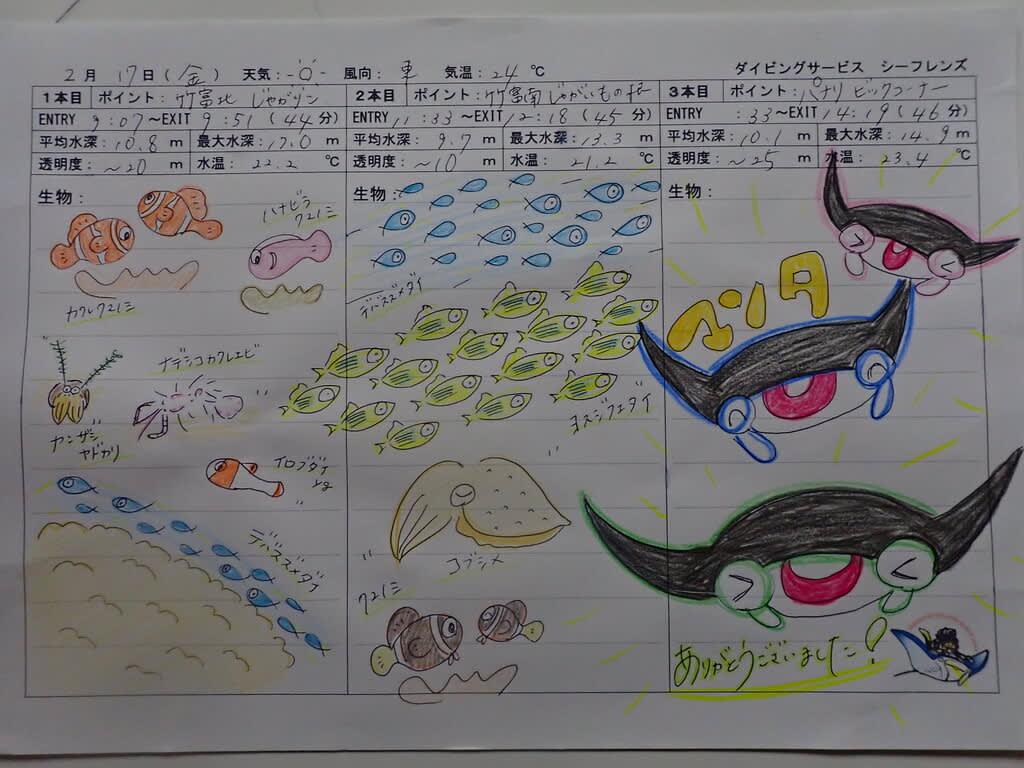 2月 17日(金) 天気: 風向: 気温: 24 ℃ ダイビングサービス シーフレンズ
1本目 ポイント: 竹富北 じゃがリン 2本目 ポイント: 竹富南 じゃがいもの根 3本目 ポイント: パナリ ビックコーナー
ENTRY 9:07~EXIT 9:51(44分) ENTRY 11:33~EXIT 12:18(45分) ENTRY :33~EXIT 14:19(46分)
平均水深: 10.8 m 最大水深: m 平均水深: 9.7 m 最大水深: 13.3 m 平均水深: 10.1 m 最大水深: 14.9 m
透明度: ~20 m 水温: 22.2 ℃ 透明度: ~10 m 水温: 21.2 ℃ 透明度: ~25 m 水温: 23.4 ℃
生物: 生物: 生物:
ハナビラ
クマノミ
カクレクマノミ
ナデシコカクレエビ
カンザシ
ヤドカリ
イロブダイ
yg
デバスズメダイ
デバスズメダイ
ヨスジフエダイ
コブシメ
クマノミ
マンタ
ありがとうございました!